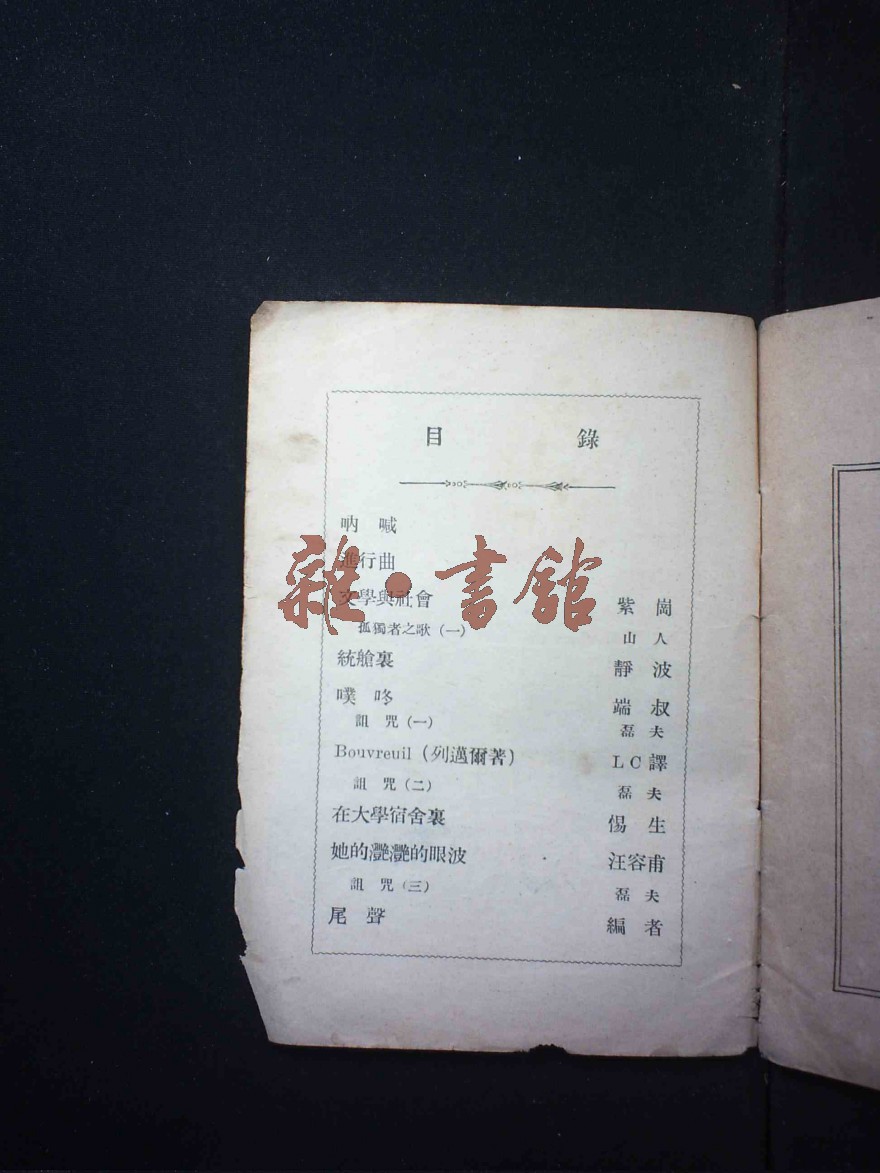 目錄
吶喊
進行曲
文學與社會 紫崗
孤獨者之歌（一） 山人
統艙裏 靜波
噗咚 端叔
詛咒（一） 磊夫
Bouvreuil（列邁爾著） LC譯
詛咒（二） 磊夫
在大學宿舍裏 惕生
她的灧灧的眼波 汪容甫
詛咒（三） 磊夫
尾聲 編者
雜·書館